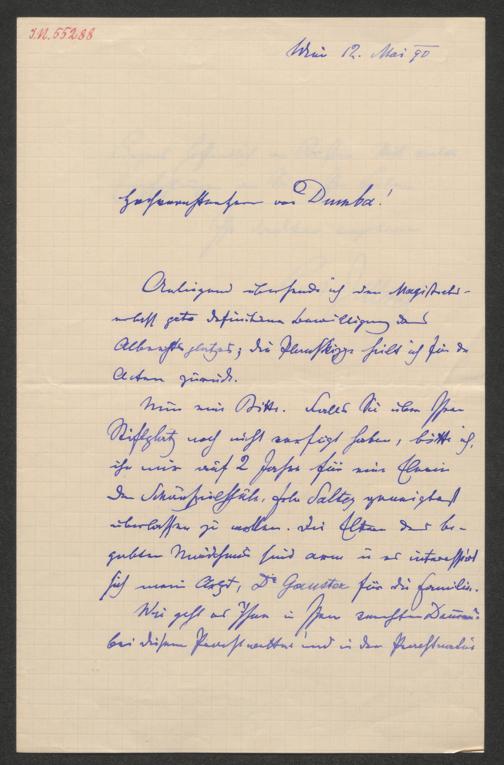 J.N. 55288
Wien 12. Mai 90
Hochverehrtester von Dumba!
Anliegend übersende ich den Magistrats-
erlaß puncto definitiver Bewilligung des
Albrechtsplatzes; die Planskizze hielt ich für die
Acten zurück.
Nun eine Bitte. Falls Sie über Ihren
Stiftplatz noch nicht verfügt haben, bitte ich,
ihn mir auf 2 Jahre für eine Elevin
der Schauspielschule, Frln Saltey geneigtest
überlassen zu wollen. Die Eltern des be-
gabten Mädchens sind arm u es interessirt
sich mein Arzt, Dr Gauster für die Familie.
Wie geht es Ihnen u Ihren verehrten Damen
bei diesem Prachtwetter und in der Prachtnatur